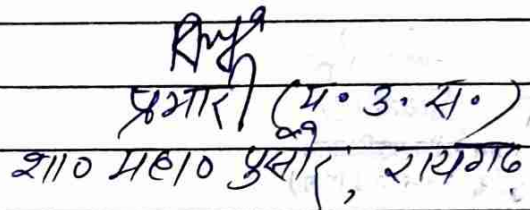 प्रभारी (म. उ. स.)
शा० महा० पुसौर, रायगढ़